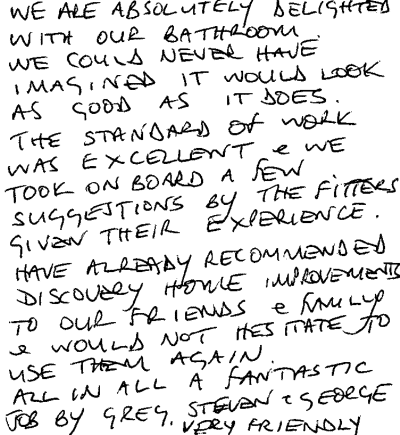 WE ARE ABSOLUTELY DELIGHTED
WITH OUR BATHROOM.
WE COULD NEVER HAVE
IMAGINED IT WOULD LOOK
AS GOOD AS IT DOES.
THE STANDARD OF WORK
WAS EXCELLENT & WE
TOOK ON BOARD A FEW
SUGGESTIONS BY THE FITTERS
GIVEN THEIR EXPERIENCE.
HAVE ALREADY RECOMMENDED
DISCOVERY HOME IMPROVEMENTS
TO OUR FRIENDS & FAMILY
& WOULD NOT HESITATE TO
USE THEM AGAIN.
ALL IN ALL A FANTASTIC
JOB BY GREG, STEVEN & GEORGE
VERY FRIENDLY